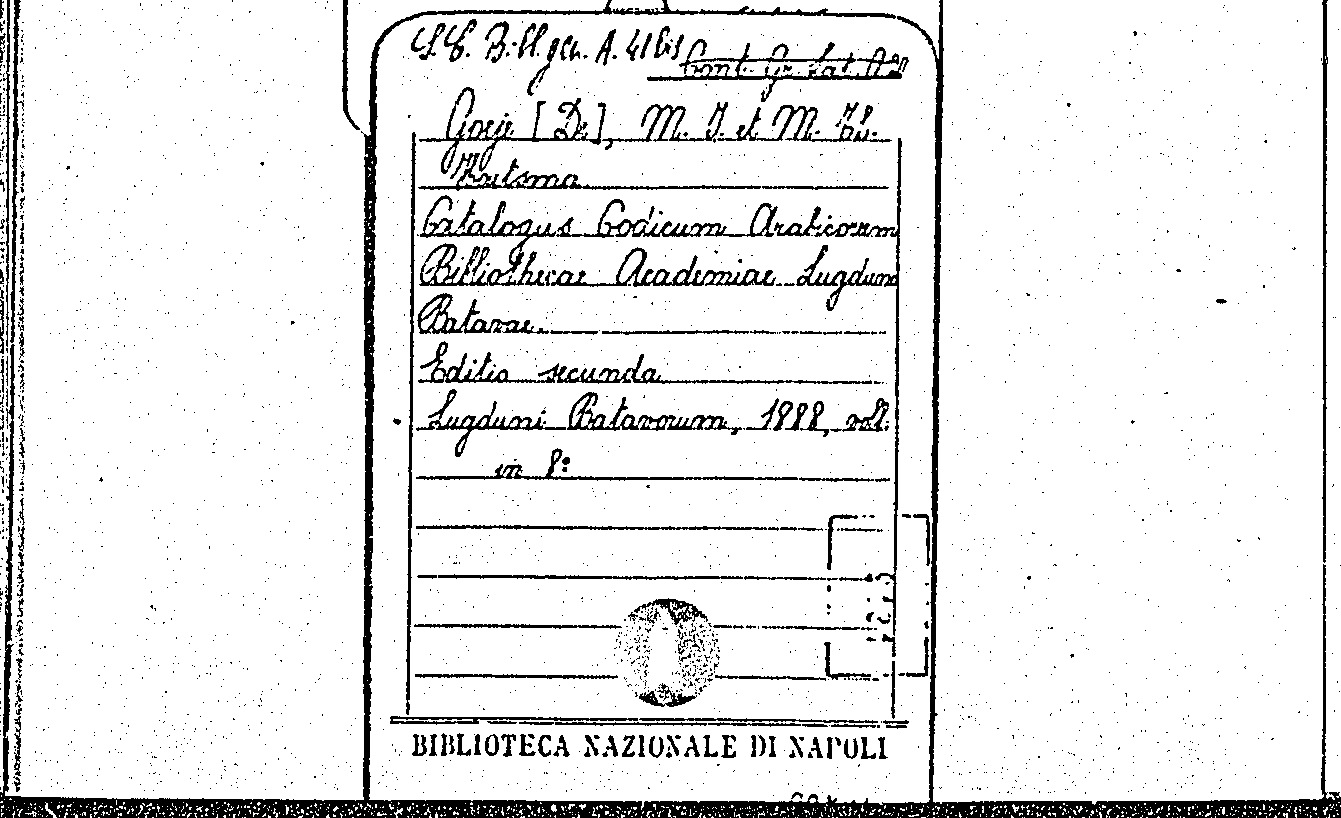 S.C. Bibl. gen. A. 41 bis Cont. Gr. Lat. A 20
Goeje [De], M. J. et M. Th.
Hutsma
Catalogus Codicum Arabicorum
Bibliothecae Academiae Lugduno
Batavae.
Editio secunda
Lugduni Batavorum, 1888, voll.
in 8º
BIBLIOTECA NAZIONALE DI NAPOLI